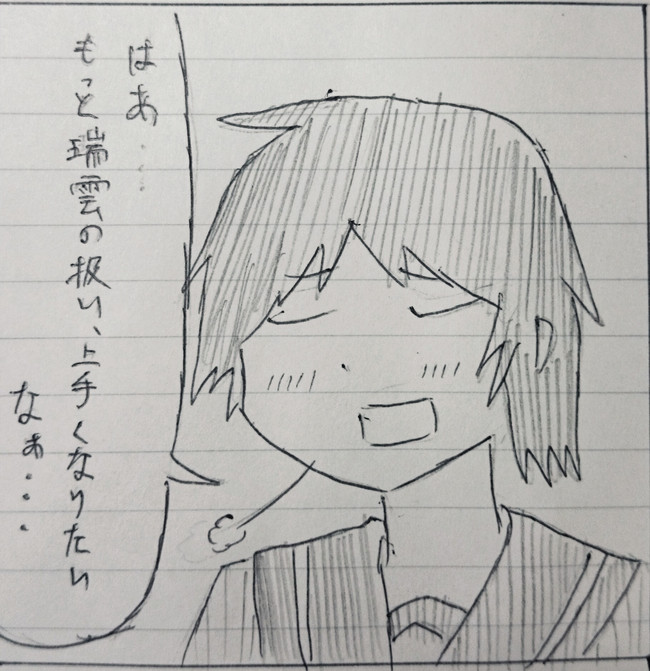 はあ…
もっと瑞雲の扱い、上手くなりたい
なぁ...